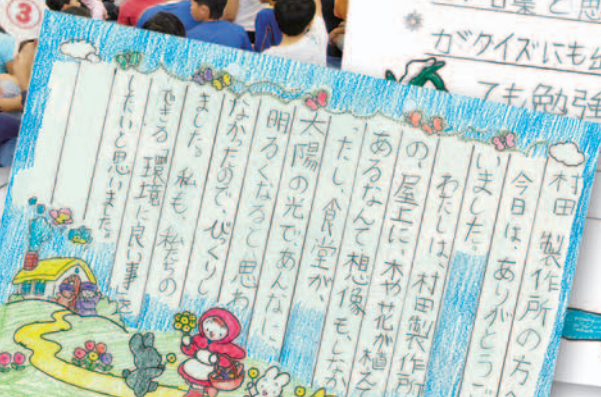 3
村田製作所の方へ
今日は、ありがとうご
いました。
わたしは、村田製作所
の、屋上に、木や花が植え
あるなんて想像もしなか
ったし、食堂が、
太陽の光で、あんなに
明るくなると思わ
なかったので、びっくりし
ました。私も、私たちの
できる環境に良い事を
したいと思いました。
がクイズにも
ても勉強